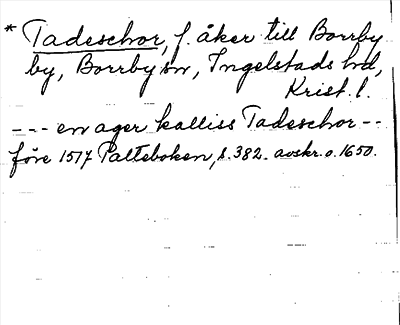 * Tadeschor, f. åker till Borrby
by, Borrby sn, Ingelstads hd,
Krist. l.
--- en ager kalliss Tadeschor --
före 1517 Palteboken, s. 382. avskr. o. 1650.